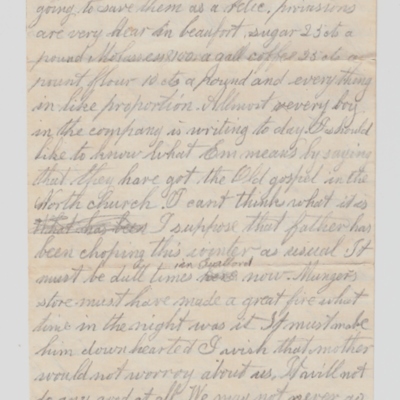 going to save them as a relic. provisions
are very dear in beaufort sugar 25 cts a
pound Molasses 200 a gall coffee 35 cts a
pount flour 10 cts a pound and everything
in like proportion. Allmost every boy
in the company is writing to day I should
like to know what Em means by saying
that they have got the Old gospel in the
North church. I cant think what it is
What has been I suppose that father has
been choping this winter as usual It
must be dull times in now. Mungers
store must have made a great fire what
time in the night was it It must make
him down hearted I wish that mother
would not worroy about us. It will not
do any good at all. We may not never go